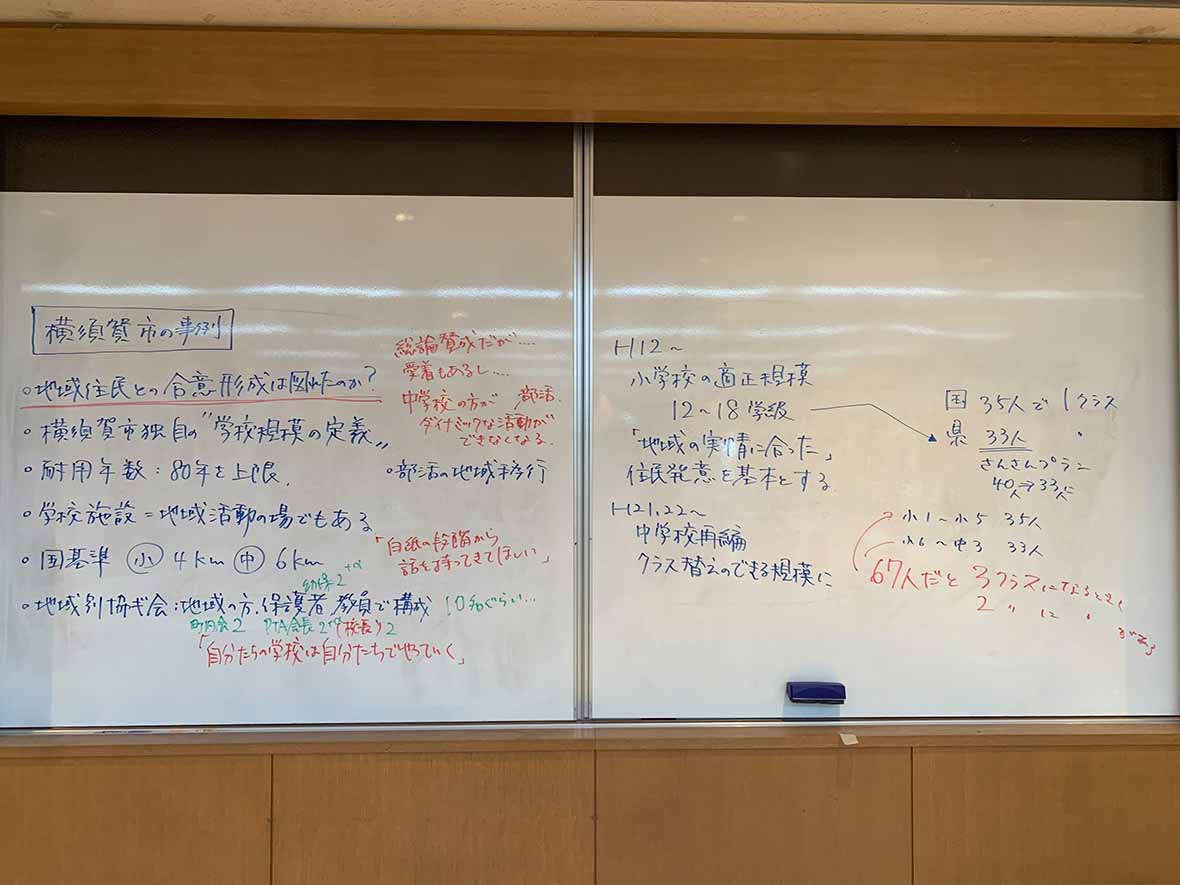 横須賀市の事例
・地域住民との合意形成は図れたのか?
・横須賀市独自の"学校規模の定義"
・耐用年数:80年を上限.
・学校施設=地域活動の場でもある
・国基準 小 4km 中 6km
幼保2 +α
・地域別協ギ会:地域の方.保護者.教員で構成 10名ぐらい…
町内会2 PTA会長2 校長 2
「自分たちの学校は自分たちでやっていく」
総論賛成だが….
愛着もあるし….
中学校の方が 部活.
ダイナミックな活動が
できなくなる.
・部活の地域移行
「白紙の段階から
話を持ってきてほしい」
H12~
小学校の適正規模
12~18学級
「地域の実情に合った」
住民発意を基本とする.
H21.22~
中学校再編
クラス替えのできる規模に
国 35人で1クラス
県 33人 〃
さんさんプラン
40人→33人に
小1~小5 35人
小6~中3 33人
67人だと 3クラスになるとき
2 〃 に 〃 がある